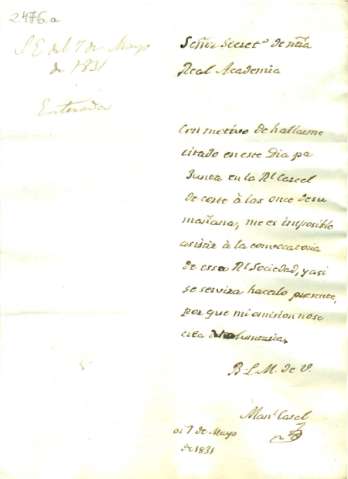 2476a
S E del 7 de Mayo
de 1831
Enterada
Señor Secret.º de nra
Real Academia
Con motivo de hallarme
citado en este Dia pa
Junta en la Rl Carcel
de corte à las once de su
mañana, me es imposible
asistir à la convocatoria
de essa Rl Sociedad, y asi
se servira hacerlo presente,
por que mi omision no se
crea voluntaria.
B. L. M. de V.
Man.l Casal
oi 7 de Mayo
de 1831